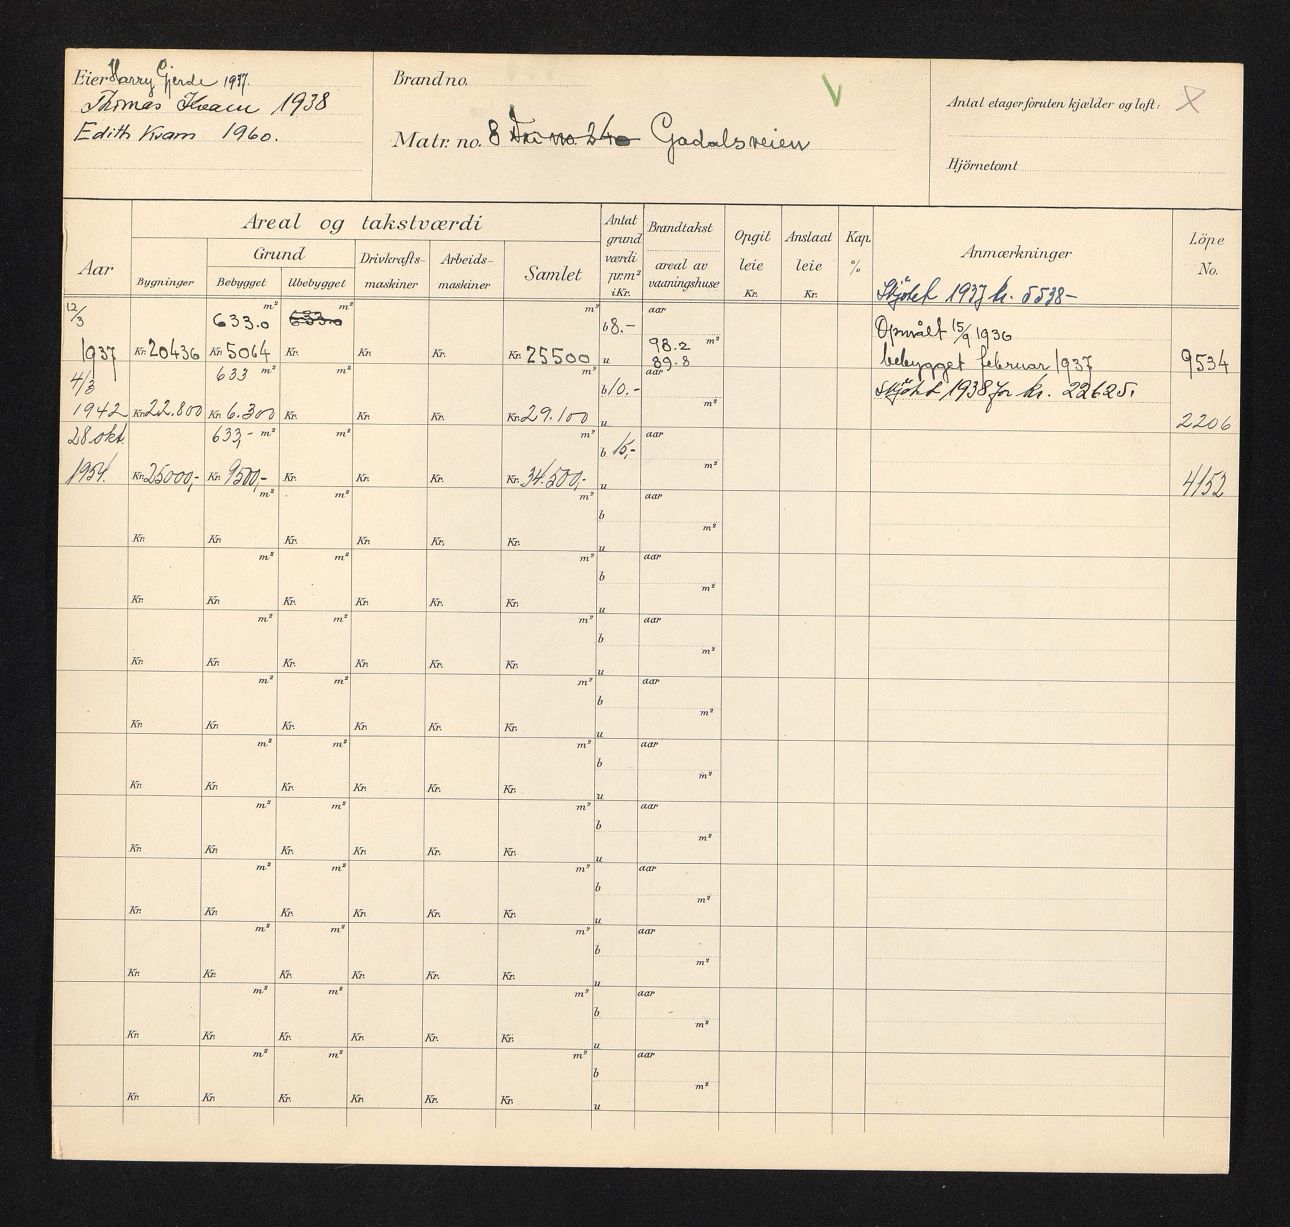 Eier Harry Gjerde 1937.
Thomas Kvam 1938
Edith Kvam 1960.
Brand no.
Matr. no. 8 Tri no. 240 Gadalsveien
V
Antal etager foruten kjælder og loft: X
Hjörnetomt
Aar
Areal og takstværdi
Bygninger
Grund
Bebygget
Ubebygget
Drivkrafts-
maskiner
Arbeids-
maskiner
Samlet
Antat
grund
værdi
pr. m²
i Kr.
Brandtakst
areal av
vaaningshuse
Opgit
leie
Kr.
Anslaat
leie
Kr.
Kap.
%
Anmærkninger
Löpe
No.
Skjötet 1937 kr. 5538-
12/3 633.0 m² 633.0 m² m² b 8.- aar Opmålt 15/9 1936
1937 Kr. 20436 Kr. 5064 Kr. Kr. Kr. Kr. 25500 u 98.2 m² 89.8 bebygget februar 1937 9534
4/3 633 m² m² m² b 10.- aar skjötet 1938 for kr. 22625.
1942 Kr. 22.800 Kr. 6.300 Kr. Kr. Kr. Kr. 29.100 u m² 2206
28 okt. 633,- m² m² m² b 15,- aar
1954. Kr. 25000,- Kr. 9500,- Kr. Kr. Kr. Kr. 34.500,- u m² 4152
m² m² m² b aar
Kr. Kr. Kr. Kr. Kr. Kr. u m²
m² m² m² b aar
Kr. Kr. Kr. Kr. Kr. Kr. u m²
m² m² m² b aar
Kr. Kr. Kr. Kr. Kr. Kr. u m²
m² m² m² b aar
Kr. Kr. Kr. Kr. Kr. Kr. u m²
m² m² m² b aar
Kr. Kr. Kr. Kr. Kr. Kr. u m²
m² m² m² b aar
Kr. Kr. Kr. Kr. Kr. Kr. u m²
m² m² m² b aar
Kr. Kr. Kr. Kr. Kr. Kr. u m²
m² m² m² b aar
Kr. Kr. Kr. Kr. Kr. Kr. u m²
m² m² m² b aar
Kr. Kr. Kr. Kr. Kr. Kr. u m²
m² m² m² b aar
Kr. Kr. Kr. Kr. Kr. Kr. u m²